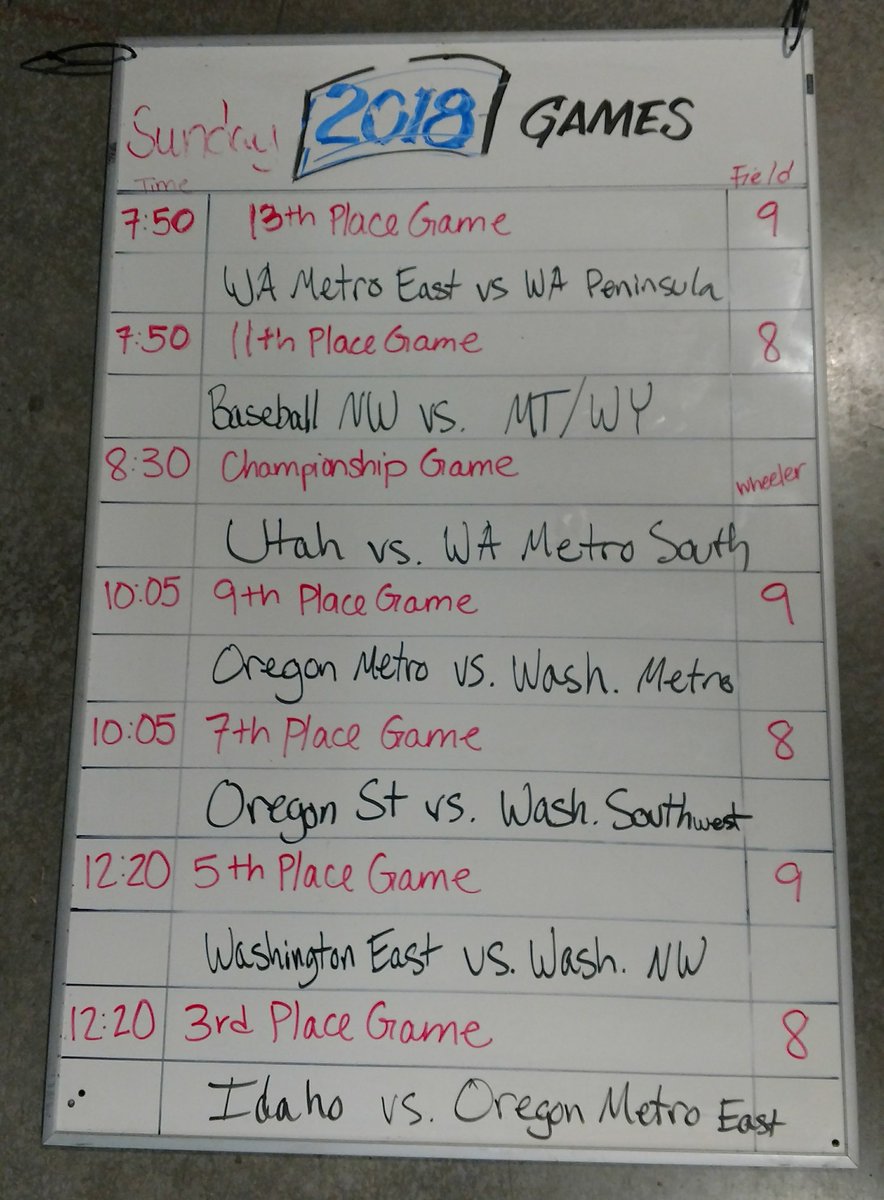 Sunday 2018 GAMES
Time Field
7:50 13th Place Game 9
WA Metro East vs WA Peninsula
7:50 11th Place Game 8
Baseball NW vs. MT/WY
8:30 Championship Game wheeler
Utah vs. WA Metro South
10:05 9th Place Game 9
Oregon Metro vs. Wash. Metro
10:05 7th Place Game 8
Oregon St vs. Wash. Southwest
12:20 5th Place Game 9
Washington East vs. Wash. NW
12:20 3rd Place Game 8
Idaho vs. Oregon Metro East